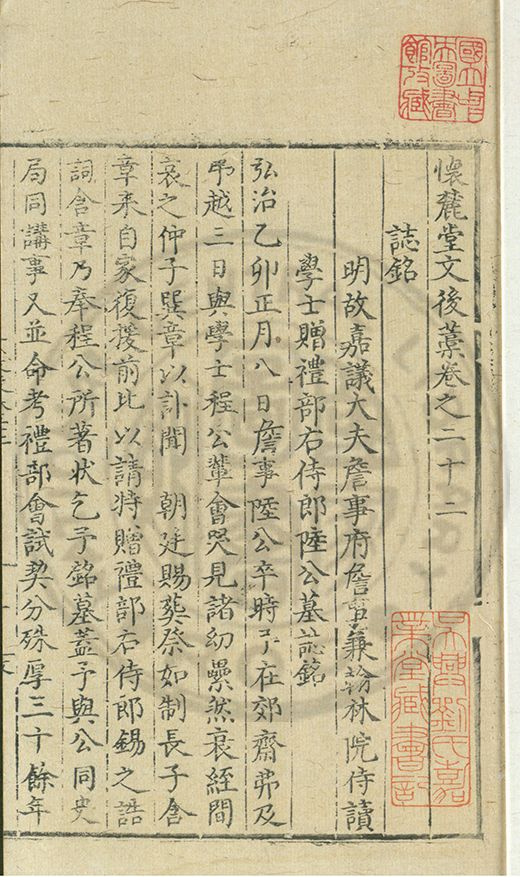 國立中央圖書館收藏
懷麓堂文後藁卷之二十二
誌銘
明故嘉議大夫詹事府詹事兼翰林院侍讀
學士贈禮部右侍郎陸公墓誌銘
弘治乙卯正月八日詹事陸公卒時予在郊齋弗及
弔越三日與學士程公輩會哭見諸幼纍然衰絰間
哀之仲子巽章以訃聞 朝廷賜葬祭如制長子含
章來自家復援前比以請特贈禮部右侍郎錫之誥
詞含章乃奉程公所著狀乞予銘墓蓋予與公同史
局同講事又並命考禮部會試契分殊厚三十餘年
吳興劉氏嘉業堂藏書記